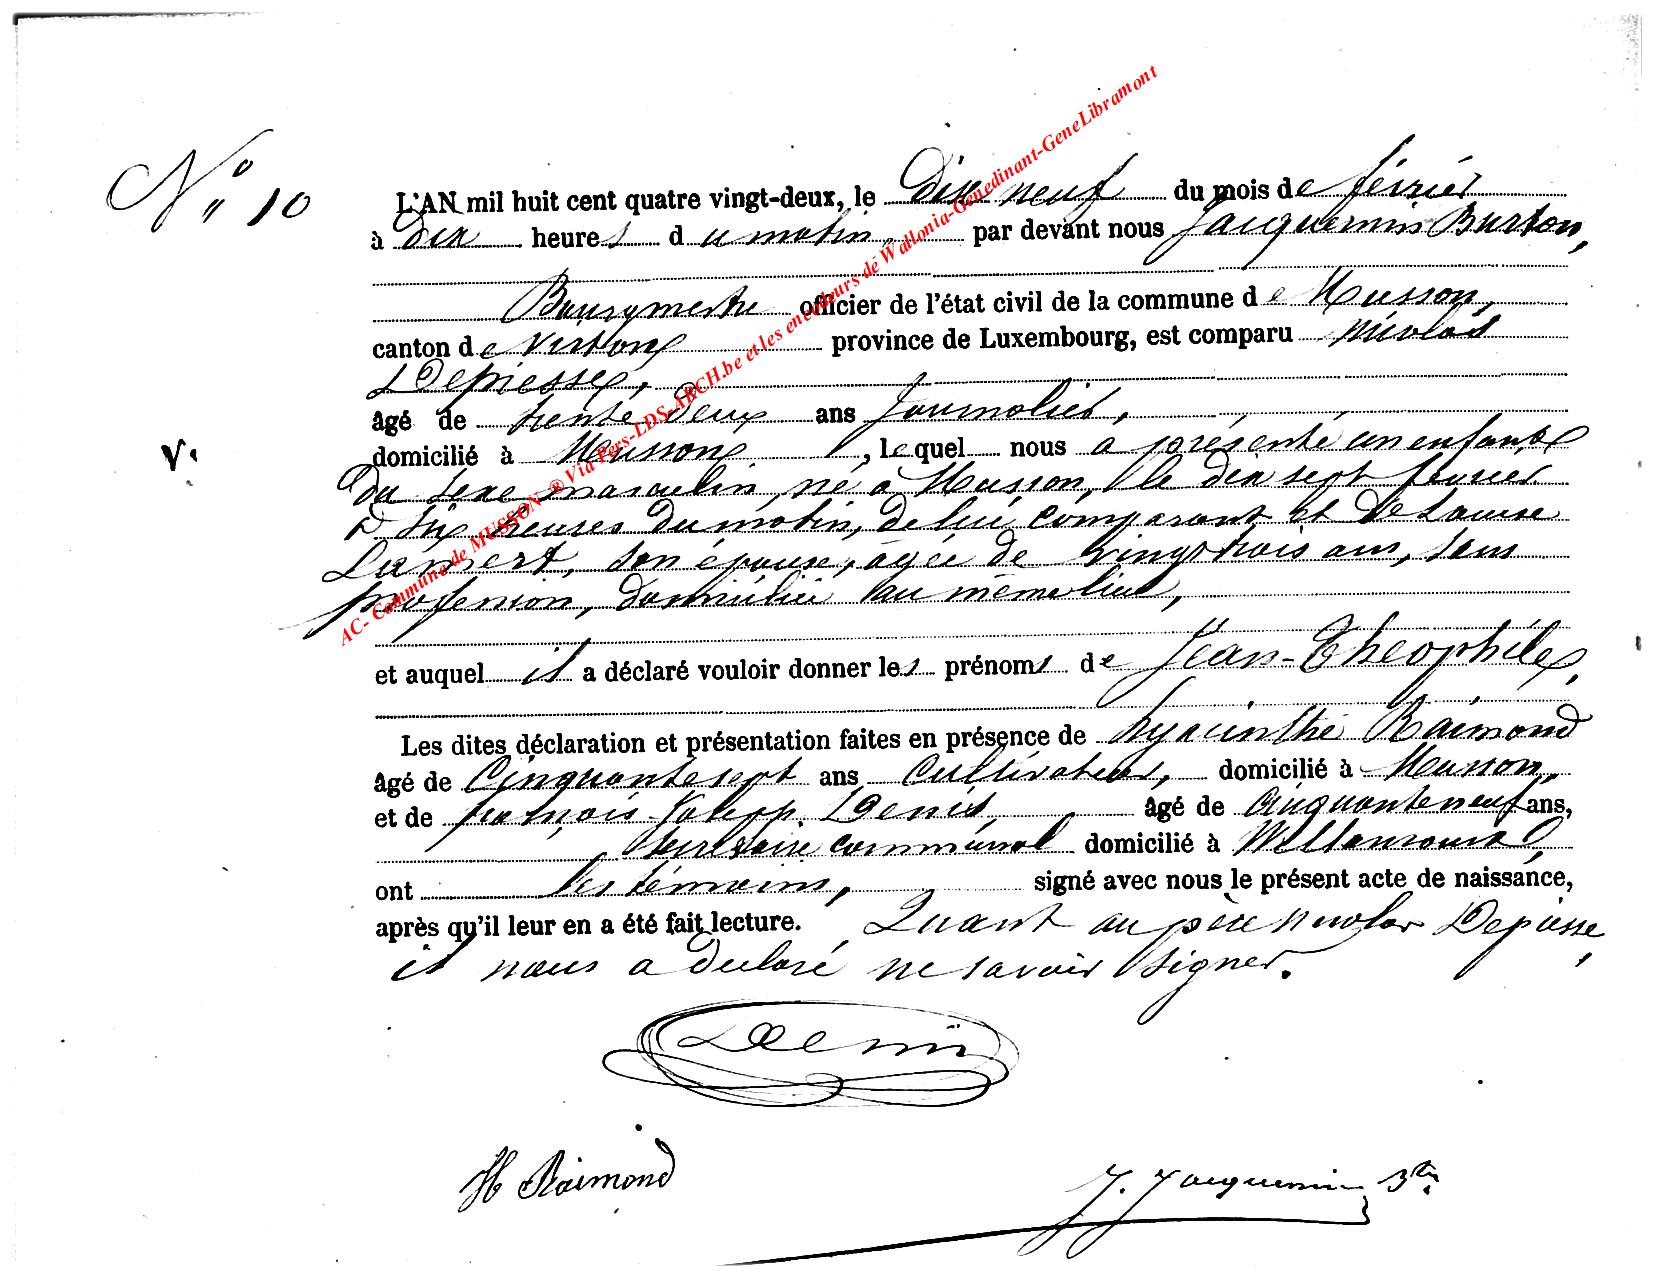 N° 10
L'AN mil huit cent quatre vingt-deux, le Dix neuf du mois de février
à Dix heures du matin, par devant nous Jacquemin Burton,
Bourgmestre officier de l'état civil de la commune de Musson,
canton de Virton province de Luxembourg, est comparu Nicolas
Depiesse,
âgé de trente deux ans Journalier,
domicilié à Musson, lequel nous a présenté un enfant
du sexe masculin, né à Musson, le dix sept février
à six heures du matin, de lui comparant et de Louise
Lambert, son épouse, âgée de vingt trois ans, sans
profession, domiciliée au même lieu,
et auquel il a déclaré vouloir donner les prénoms de Jean-Théophile,
Les dites déclaration et présentation faites en présence de hyacinthe Raimond
âgé de Cinquante sept ans Cultivateur, domicilié à Musson,
et de françois Joseph Denis, âgé de Cinquante neuf ans,
Secrétaire communal domicilié à Willancourt,
ont les témoins, signé avec nous le présent acte de naissance,
après qu'il leur en a été fait lecture. Quant au père Nicolas Depiesse,
il nous a déclaré ne savoir signer.
Denis
H Raimond
J. Jacquemin Btn
V.
AC- Commune de MUSSON ® Via Pers-LDS-ARCH.be et les encodeurs de Wallonia-Genedinant-GeneLibramont